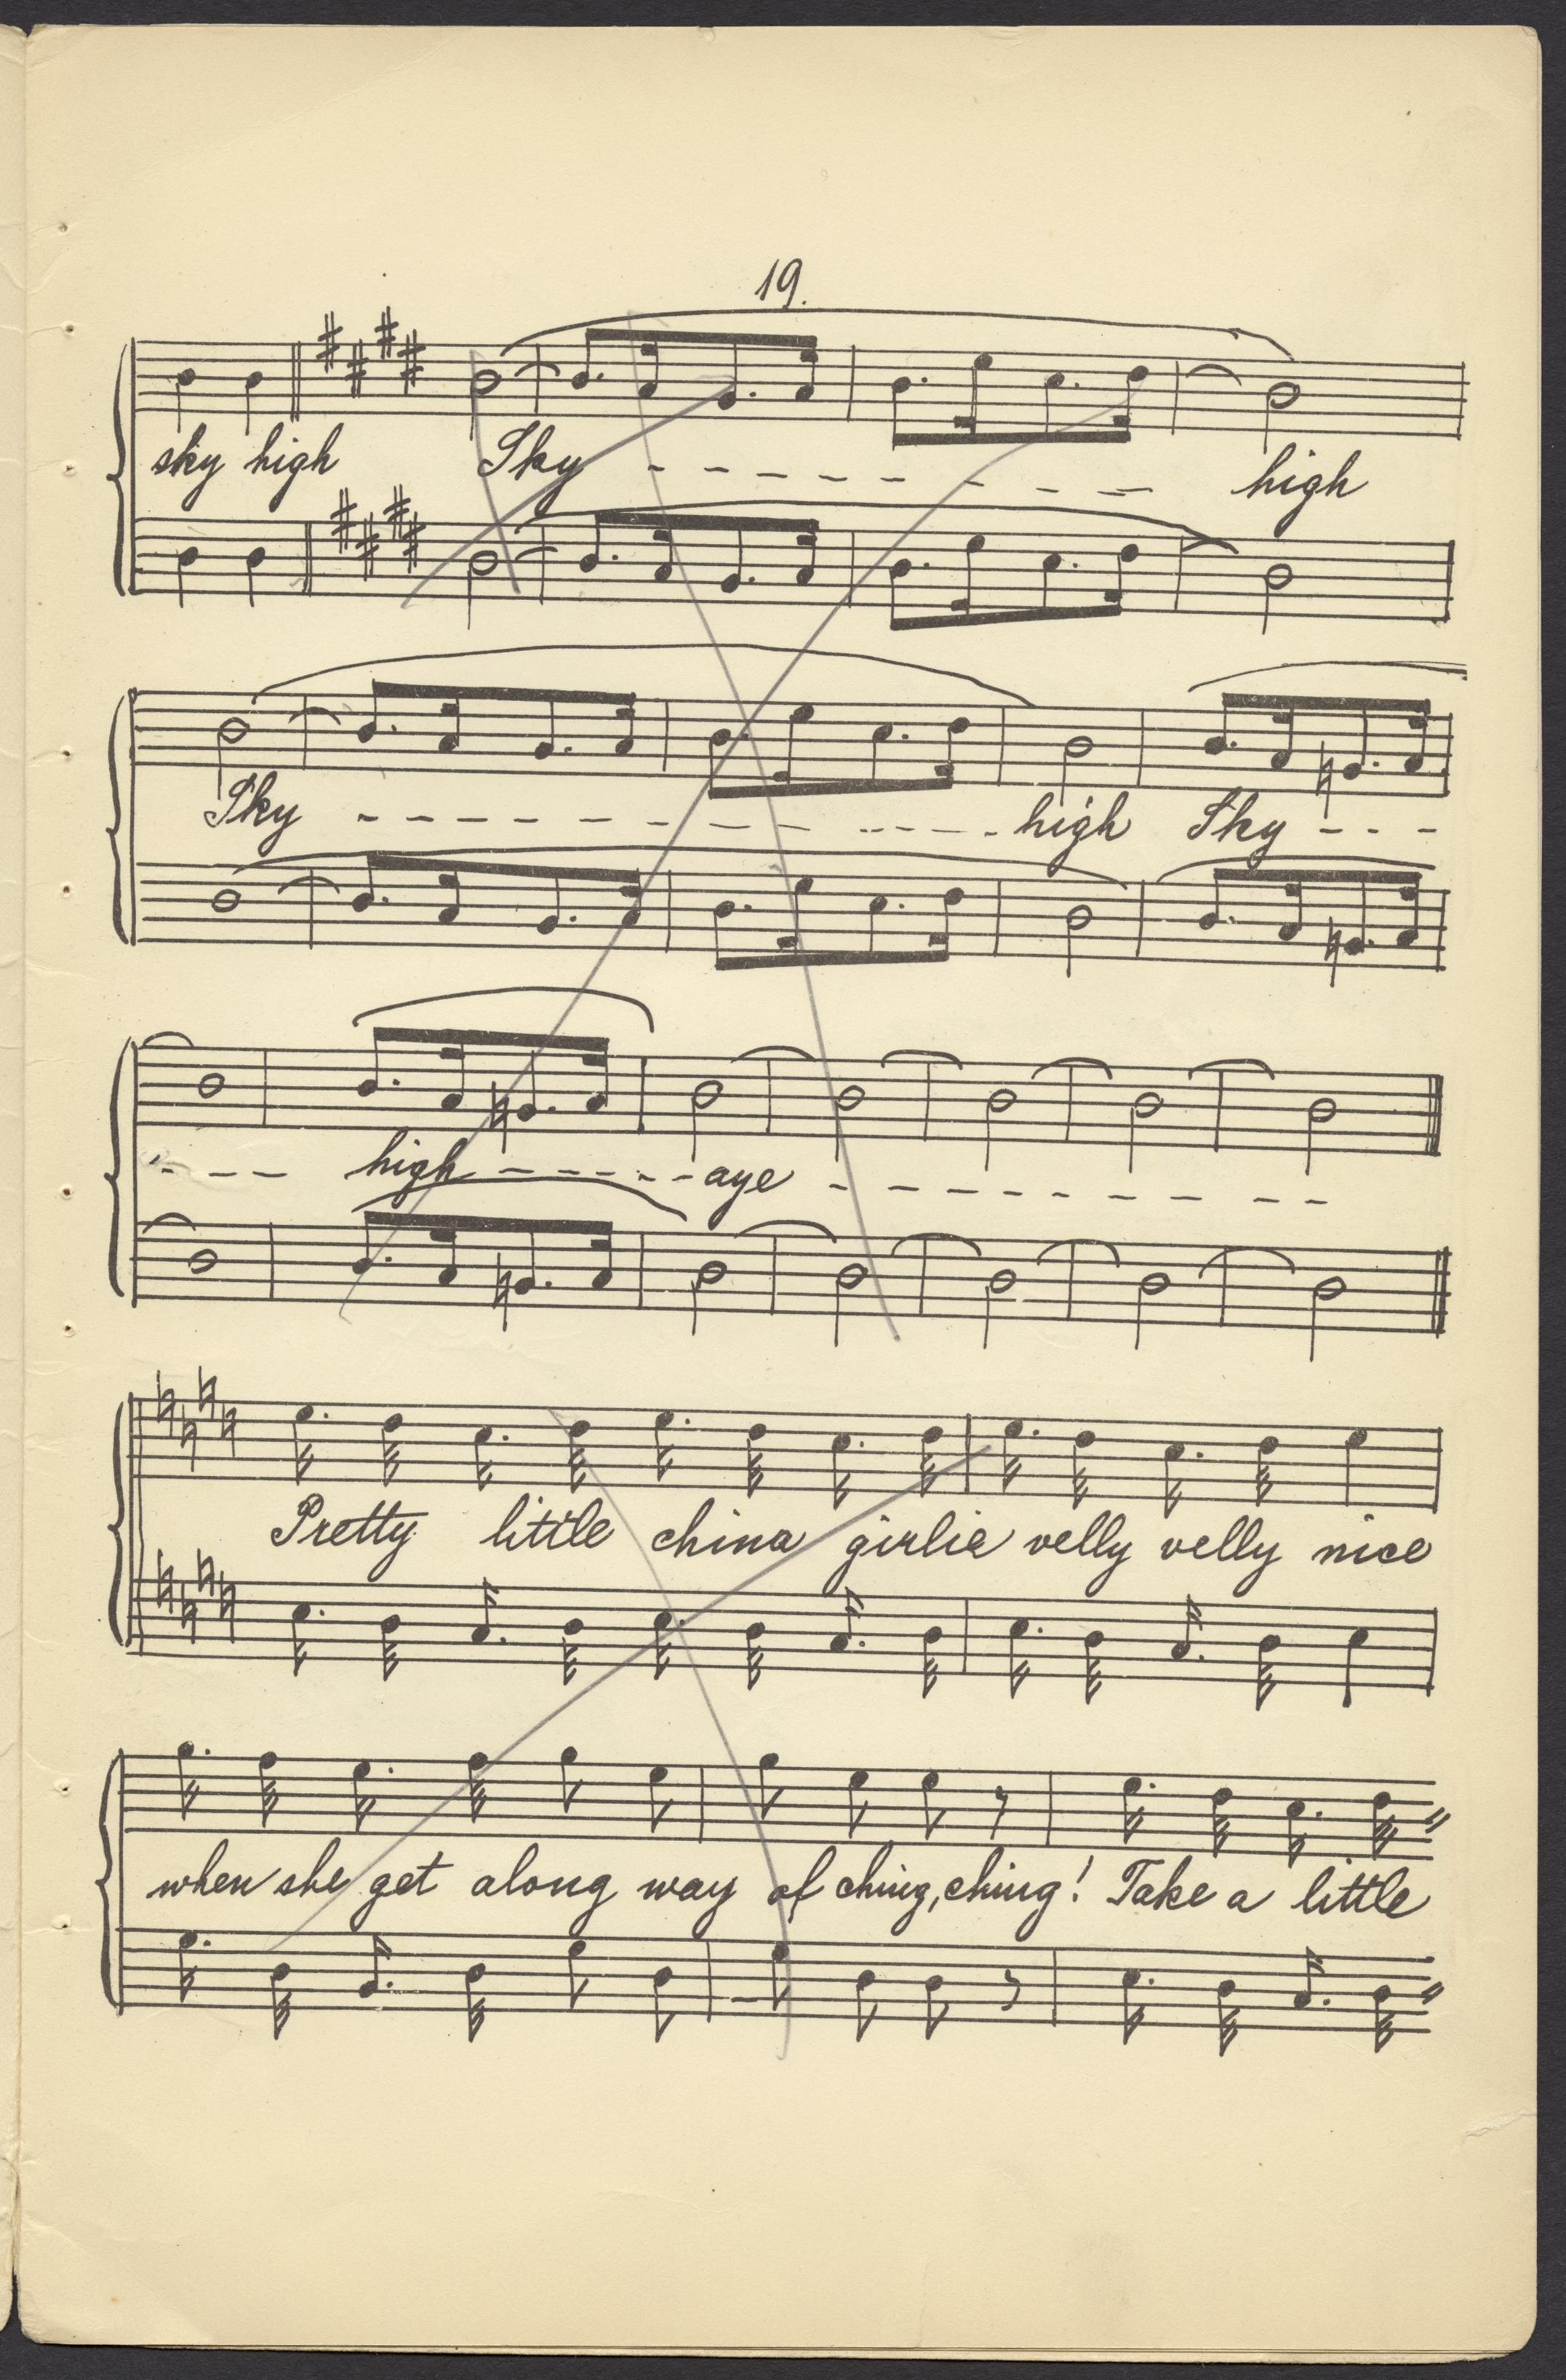 19.
sky high Sky - - - - - - - - - high
Sky - - - - - - - - - - - - - high Sky - - -
- - - high - - - - - aye - - - - - - - - -
Pretty little china girlie velly velly nice
when she get along way of ching, ching! Take a little